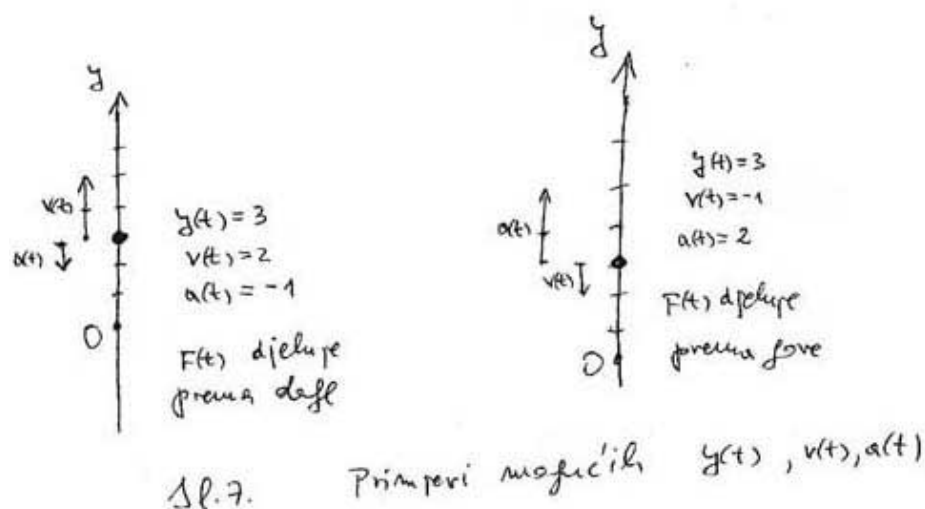 y
v(t)
a(t)
y(t)=3
v(t)=2
a(t)=-1
0
F(t) djeluje
prema dolje
y
a(t)
v(t)
y(t)=3
v(t)=-1
a(t)=2
0
F(t) djeluje
prema gore
Sl.7. Primjeri mogućih y(t), v(t), a(t)